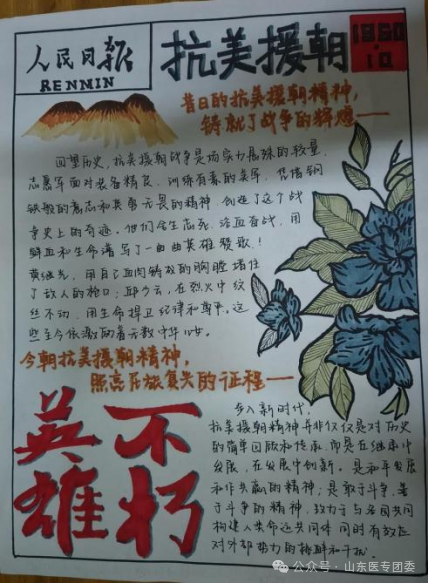 人民日报
RENMIN
抗美援朝
1950.10
昔日的抗美援朝精神，
铸就了战争的辉煌——
回望历史，抗美援朝战争是场实力悬殊的较量，
志愿军面对装备精良，训练有素的美军，凭借钢
铁般的意志和英勇无畏的精神，创造了这个战
争史上的奇迹。他们舍生忘死，浴血奋战，用
鲜血和生命谱写了一曲曲英雄赞歌！
黄继光，用自己血肉铸成的胸膛堵住
了敌人的枪口；邱少云，在烈火中纹
丝不动，用生命捍卫纪律和尊严，这
些至今依激励着无数中华儿女。
今朝抗美援朝精神，
照亮民族复兴的征程——
英雄
不朽
步入新时代，
抗美援朝精神并非仅仅是对历史
的简单回顾和传承，而是在继承中
发展，在发展中创新。是和平发展
和作共赢的精神；是敢于斗争，善
于斗争的精神，致力于与各国共同
构建人类命运共同体同时有效应
对外部势力的挑衅和干扰。
公众号·山东医专团委